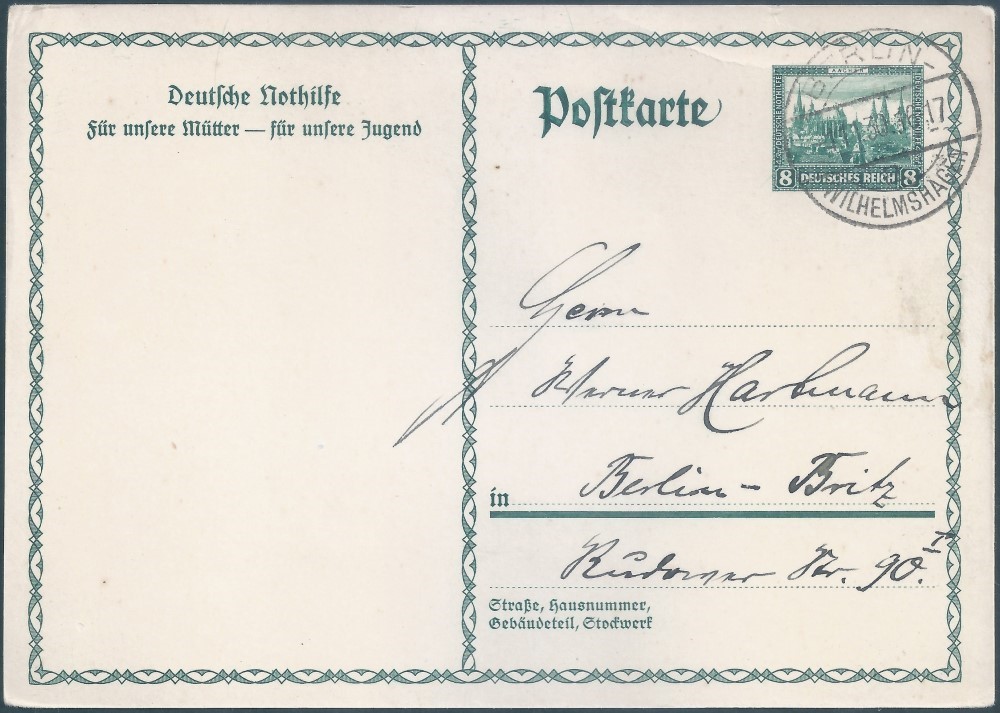 Deutsche Nothilfe
Für unsere Mütter — für unsere Jugend
Postkarte
AACHEN
8 DEUTSCHES REICH 8
BERLIN-
17
WILHELMSHAGEN
Herrn
Werner Hartmann
in Berlin - Britz
Rudower Str. 90 I
Straße, Hausnummer,
Gebäudeteil, Stockwerk